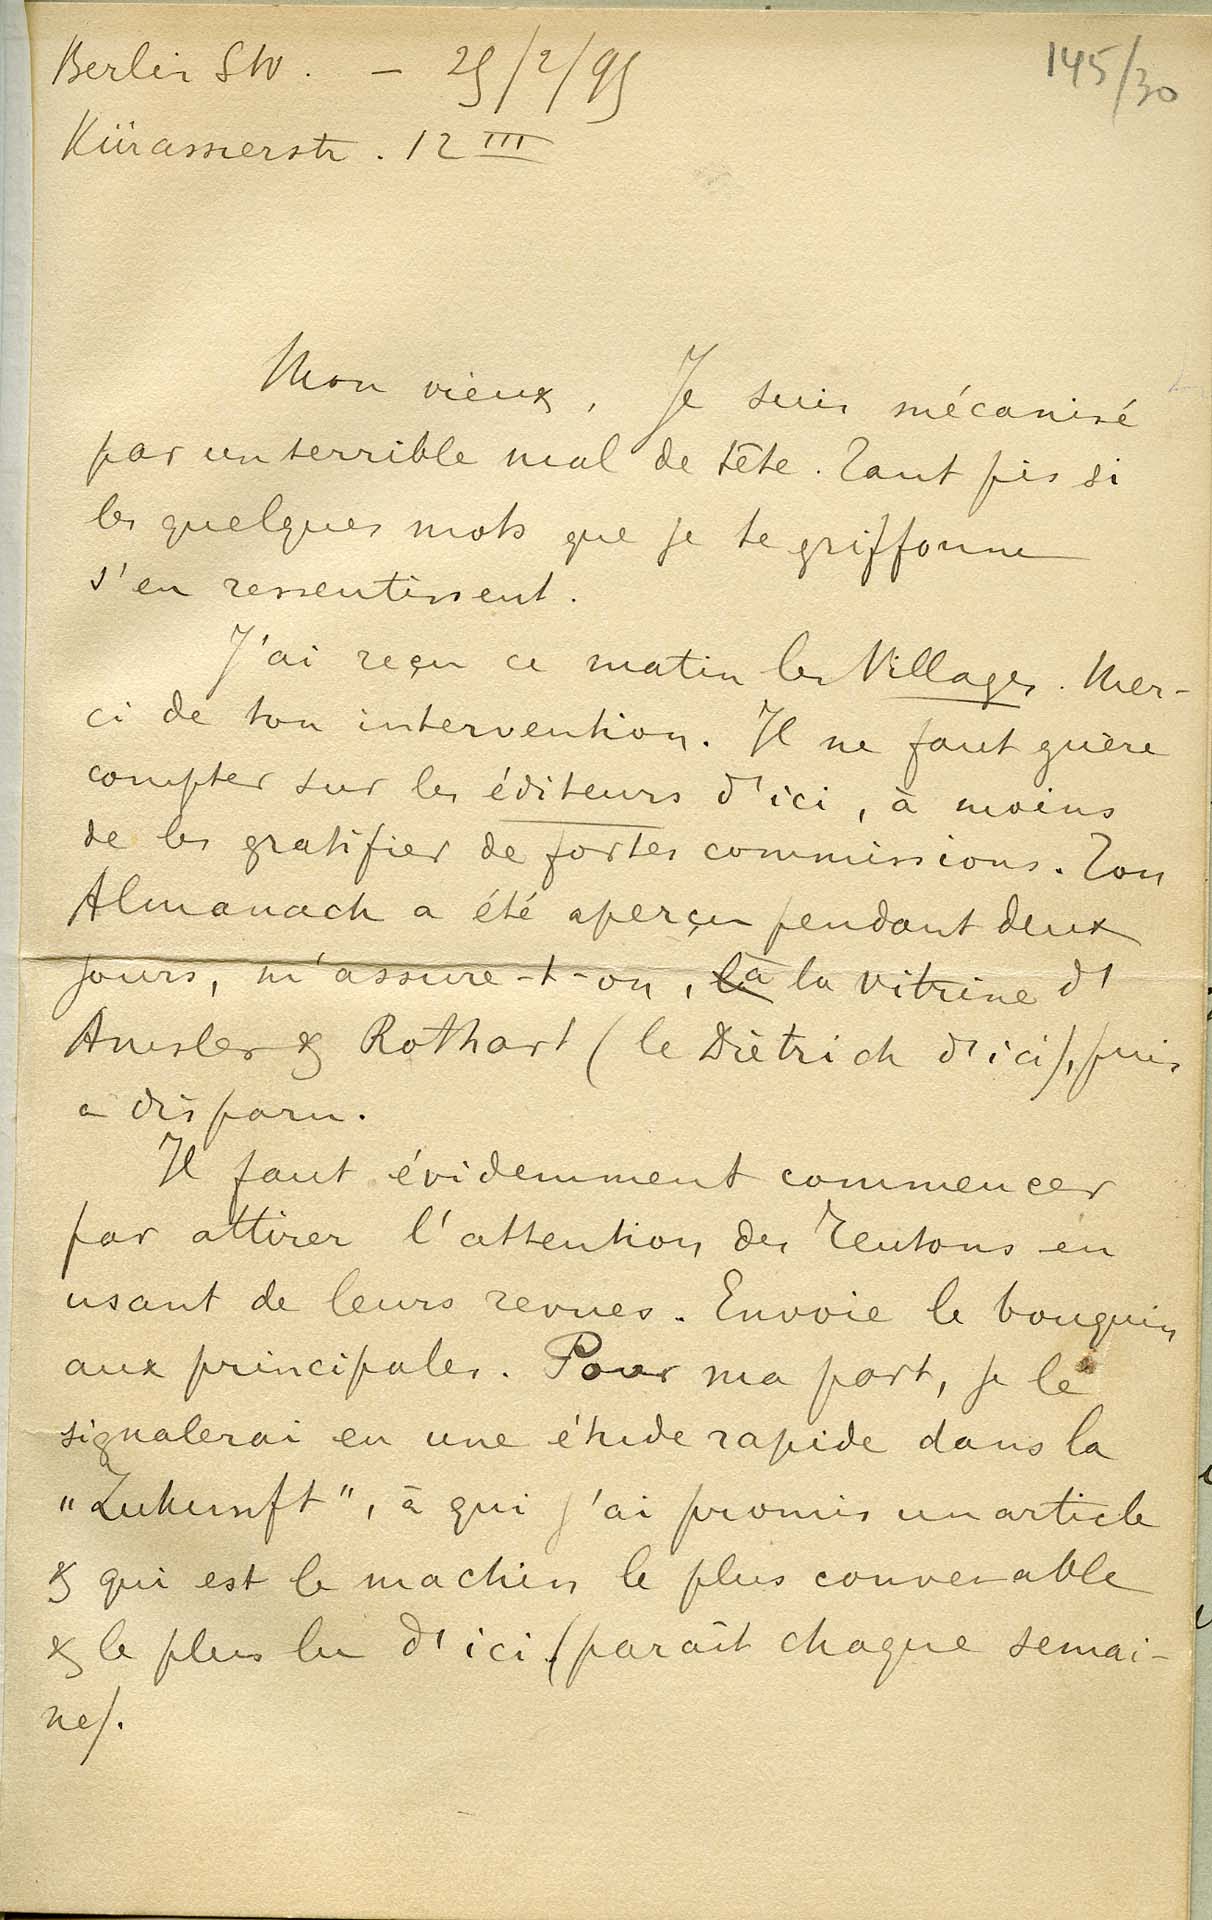 Berlin SW. – 25/2/95
145/30
Kürassierstr. 12 III
Mon vieux, Je suis mécanisé
par un terrible mal de tête. Tant pis si
les quelques mots que je te griffonne
s'en ressentissent.
J'ai reçu ce matin les Villages. Mer-
ci de ton intervention. Il ne faut guère
compter sur les éditeurs d'ici, à moins
de les gratifier de fortes commissions. Ton
Almanach a été aperçu pendant deux
jours, m'assure-t-on, à la vitrine d'
Amsler & Rothart (le Diètrich d'ici), puis
a disparu.
Il faut évidemment commencer
par attirer l'attention des Teutons en
usant de leurs revues. Envoie le bouquin
aux principales. Pour ma part, je le
signalerai en une étude rapide dans la
"Zukunft", à qui j'ai promis un article
& qui est le machin le plus convenable
& le plus lu d'ici (paraît chaque semai-
ne).